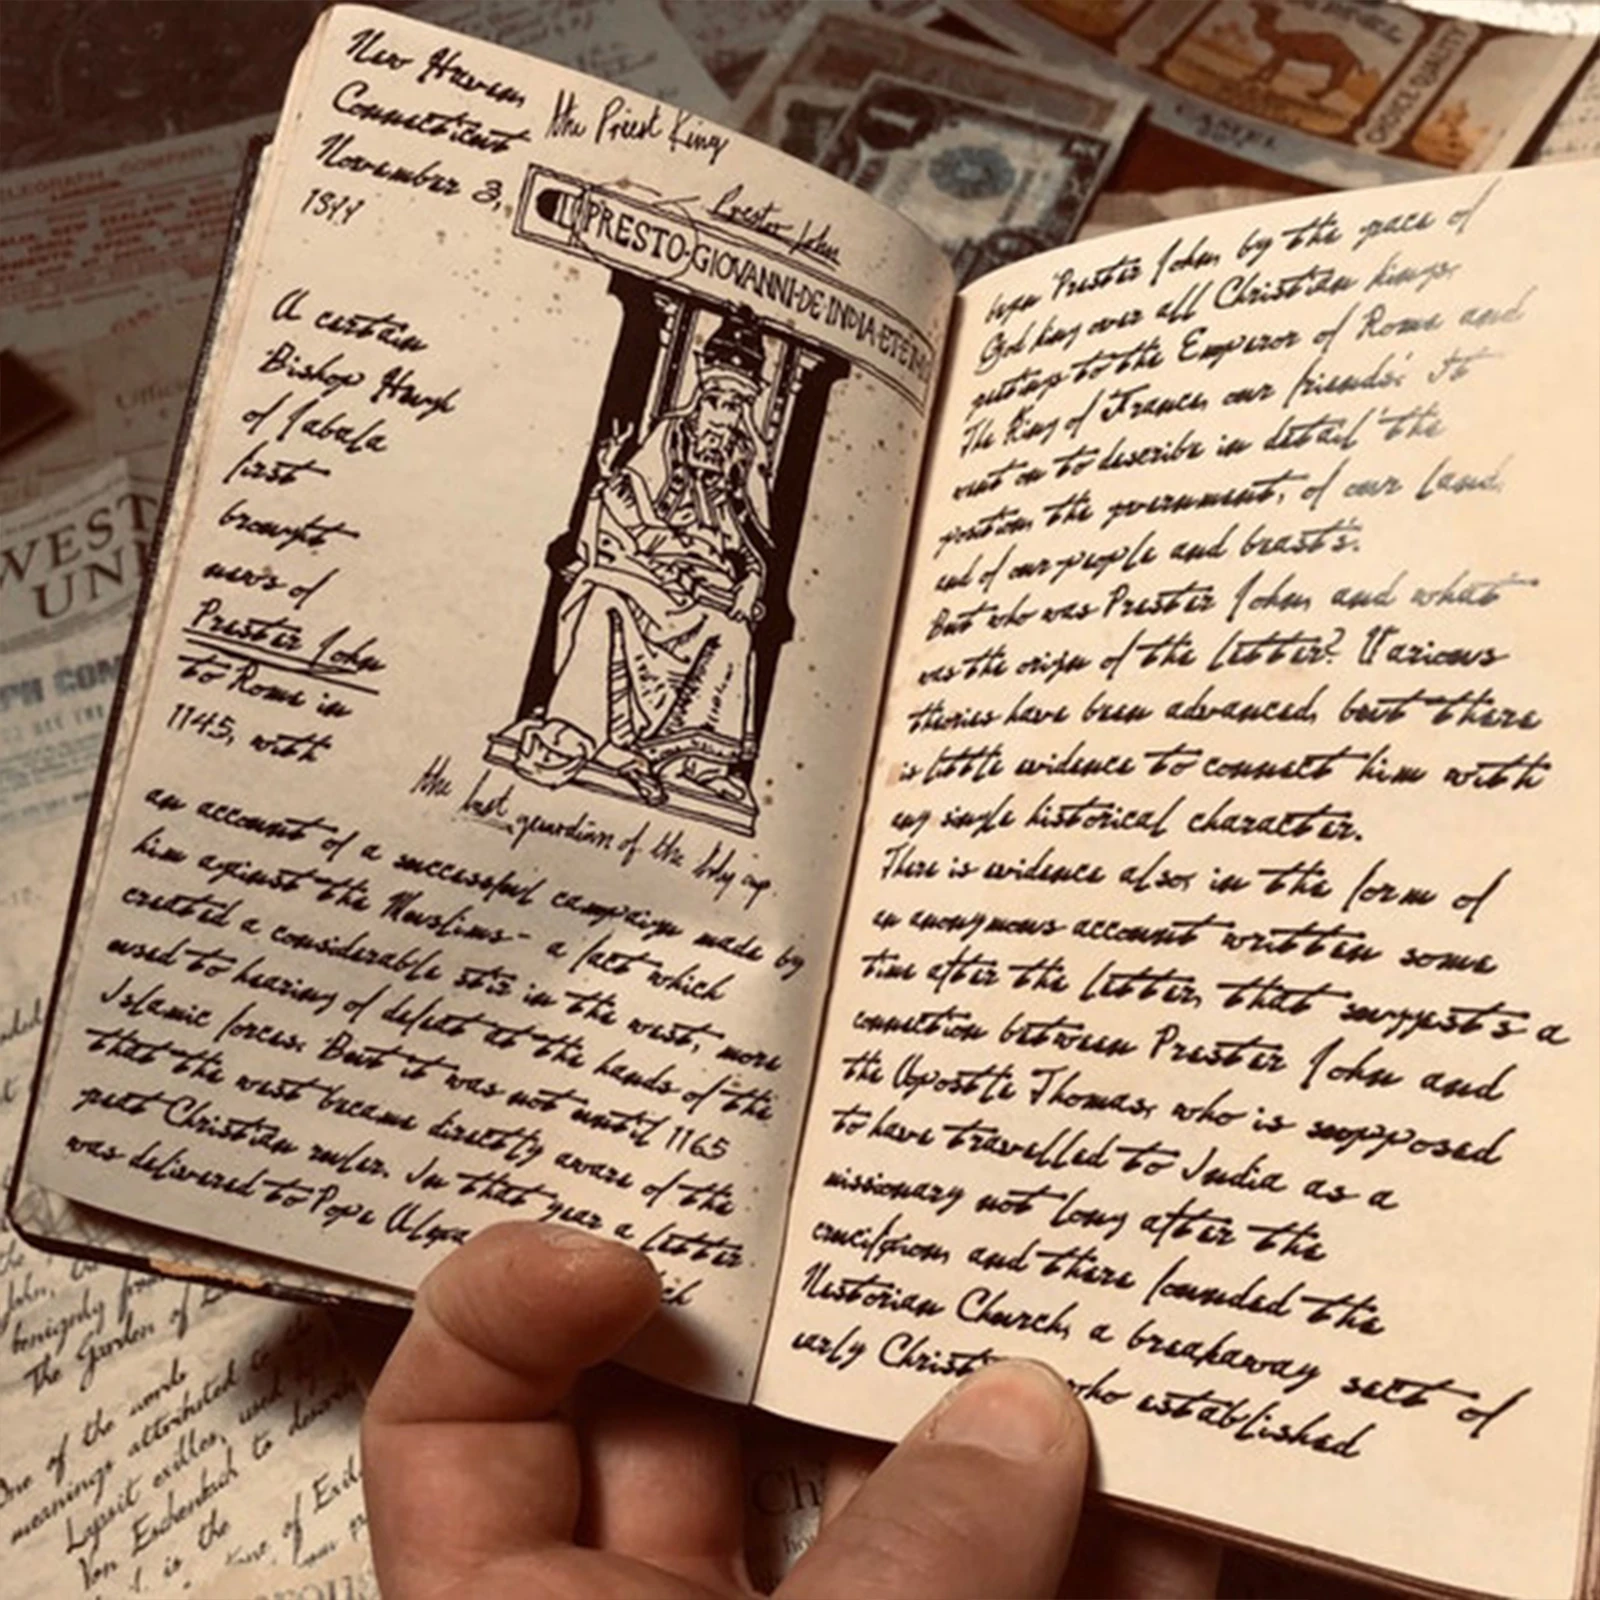 New Haven,
Connecticut
November 3,
the Priest King
Prester John
IL PRESTO·GIOVANNI·DE·INDIA·ET
A certain
Bishop Hugh
of Jabala
first
brought
news of
Prester John
to Rome in
1145, with
the last guardian of the holy cup.
an account of a successful campaign made by
him against the Muslims - a fact which
created a considerable stir in the west, more
used to hearing of defeat at the hands of the
Islamic forces. But it was not until 1165
that the west became directly aware of the
great Christian ruler. In that year a letter
was delivered to Pope
began 'Prester John, by the grace of
God king over all Christian kings,
greetings to the Emperor of Rome and
The King of France, our friends.' It
went on to describe in detail 'the
position, the government, of our land,
and of our people and beasts'.
But who was Prester John, and what
was the origin of the letter? Various
theories have been advanced, but there
is little evidence to connect him with
any single historical character.
There is evidence also, in the form of
an anonymous account written some
time after the letter, that suggests a
connection between Prester John and
the Apostle Thomas, who is supposed
to have travelled to India as a
missionary not long after the
crucifixion, and there founded the
Nestorian Church, a breakaway sect of
early who established
WEST
UNI
CHOICE QUALITY
1
benignly
The Garden of
One of the words
meanings attributed to
Lapsit exilles, used by
Von Eschenbach to describe
is the